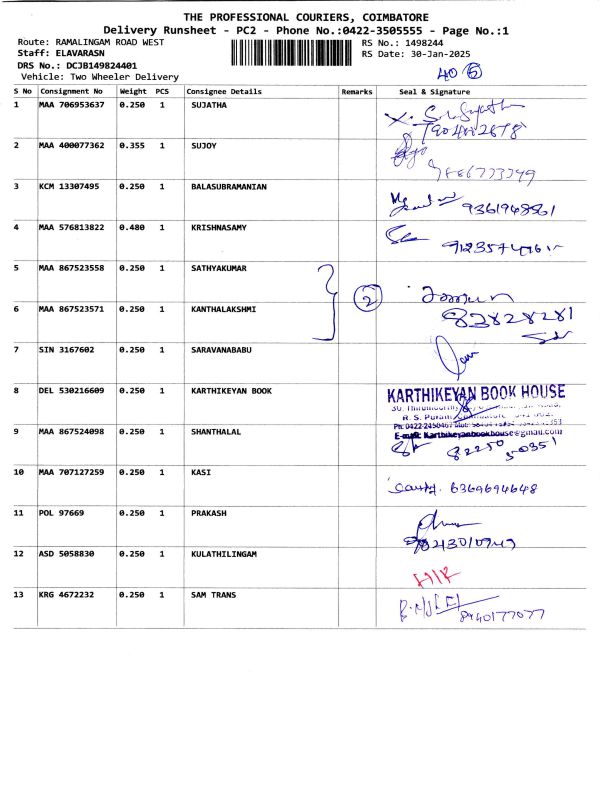 THE PROFESSIONAL COURIERS, COIMBATORE
Delivery Runsheet - PC2 - Phone No.:0422-3505555 - Page No.:1
Route: RAMALINGAM ROAD WEST RS No.: 1498244
Staff: ELAVARASN RS Date: 30-Jan-2025
DRS No.: DCJB149824401
Vehicle: Two Wheeler Delivery 40 5
S No Consignment No Weight PCS Consignee Details Remarks Seal & Signature
1 MAA 706953637 0.250 1 SUJATHA
2 MAA 400077362 0.355 1 SUJOY
3 KCM 13307495 0.250 1 BALASUBRAMANIAN
4 MAA 576813822 0.480 1 KRISHNASAMY
5 MAA 867523558 0.250 1 SATHYAKUMAR
2
6 MAA 867523571 0.250 1 KANTHALAKSHMI
7 SIN 3167602 0.250 1 SARAVANABABU
8 DEL 530216609 0.250 1 KARTHIKEYAN BOOK KARTHIKEYAN BOOK HOUSE
R. S. Puram,
9 MAA 867524098 0.250 1 SHANTHALAL
82250 50351
10 MAA 707127259 0.250 1 KASI 6369694648
11 POL 97669 0.250 1 PRAKASH
12 ASD 5058830 0.250 1 KULATHILINGAM
13 KRG 4672232 0.250 1 SAM TRANS